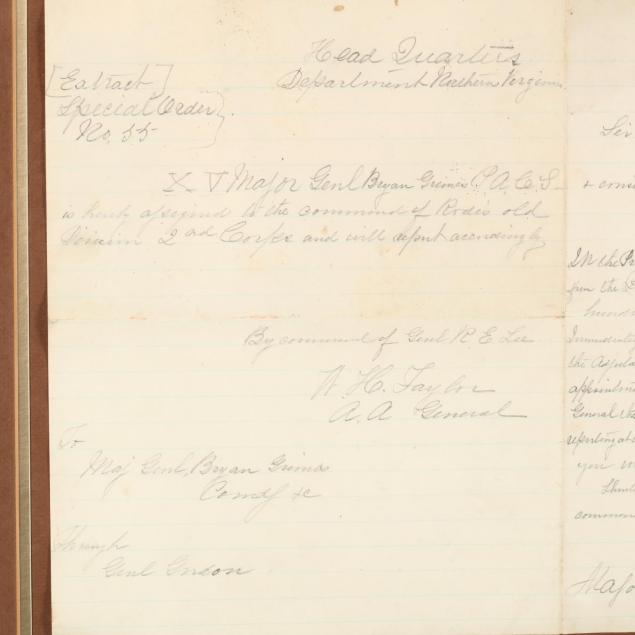 Head Quarters
Department Northern Virginia
[Extract]
Special Order
No. 55
X V Major Genl Bryan Grimes P.A.C.S.
is hereby assigned to the command of Rodes old
Division 2nd Corps and will report accordingly
By command of Genl R. E. Lee
W. H. Taylor
A. A. General
To
Maj Genl, Bryan Grimes
Comdg &c
Through
Genl Gordon
Sir
& cons
In the Pr
from the
hundr
Immediate
the Adjuta
appointmen
General
reporting at
you
commun
Majo